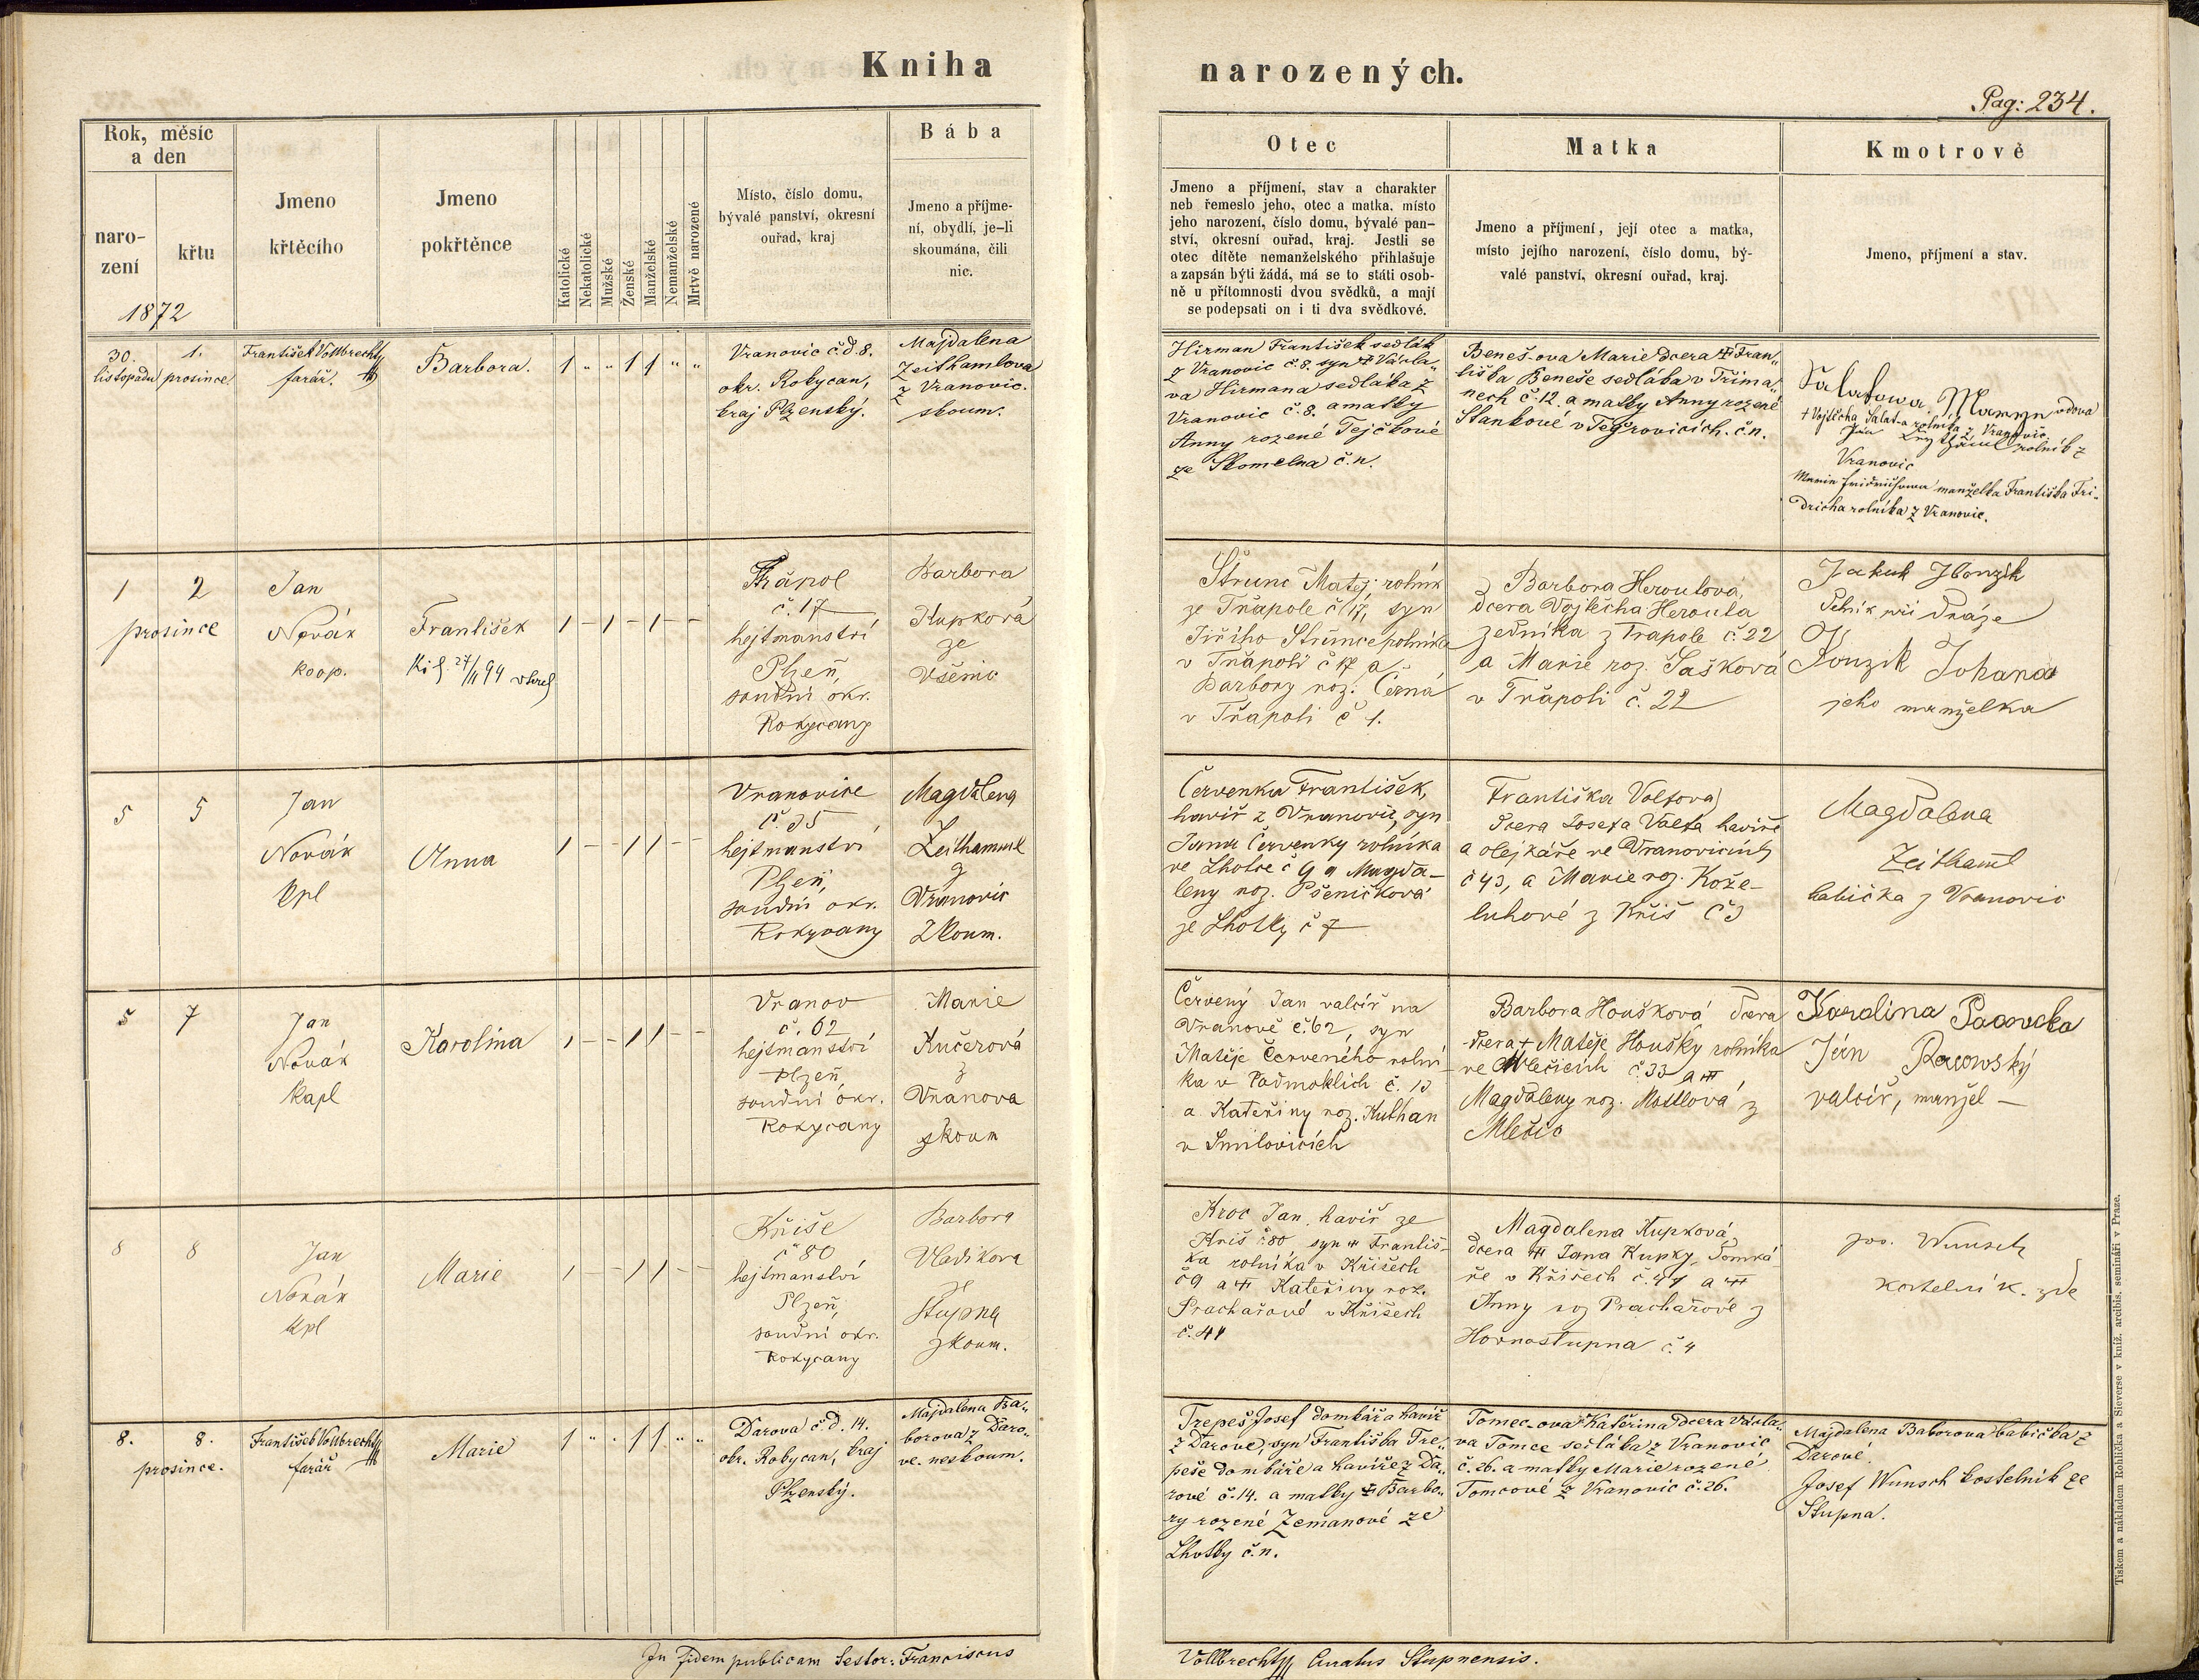 Kniha
narozených.
Pag: 234.
Rok, měsíc
a den
naro-
zení
křtu
1872
Jmeno
křtěcího
Jmeno
pokřtěnce
Katolické
Nekatolické
Mužské
Ženské
Manželské
Nemanželské
Mrtvě narozené
Místo, číslo domu,
bývalé panství, okresní
ouřad, kraj
Bába
Jmeno a příjme-
ní, obydlí, je-li
skoumána, čili
nic.
Otec
Jmeno a příjmení, stav a charakter
neb řemeslo jeho, otec a matka. místo
jeho narození, číslo domu, bývalé pan-
ství, okresní ouřad, kraj. Jestli se
otec dítěte nemanželského přihlašuje
a zapsán býti žádá, má se to státi osob-
ně u přítomnosti dvou svědků, a mají
se podepsati on i ti dva svědkové.
Matka
Jmeno a příjmení, její otec a matka,
místo jejího narození, číslo domu, bý-
valé panství, okresní ouřad, kraj.
Kmotrově
Jmeno, příjmení a stav.
30.
listopadu
1.
prosince
František Vollbrecht
farář.
Barbora.
1 " " 1 1 " "
Vranovic č.d. 8.
okr. Rokycan,
kraj Plzenský.
Majdalena
Zeithamlova
z Vranovic.
skoum.
Hirman František sedlák
z Vranovic č. 8. syn † Václa„
va Hirmana sedláka z
Vranovic č. 8. a matky
Anny rozené Tejčkové
ze Skomelna č. n.
Beneš-ova Marie dcera † Fran„
tiška Beneše sedláka v Tříma„
nech č. 12. a matky Anny rozené
Stankové v Tejřovicích. č. n.
Salatowa vdova
† Vojtěcha Salat-a rolníka z Vranovic
Jan rolník z
Vranovic
Marie manželka Františka Fri-
dricha rolníka z Vranovic.
1 2
prosince
Jan
Novák
koop.
František
27/11 94
1 – 1 – 1 – –
Třapol
č. 17
hejtmanství
Plzeň,
soudní okr.
Rokycany
Barbora
Kupková
ze
Všenic
Štrunc Matěj, rolník
ze Třapole č 17, syn
Jiřího Štrunce rolníka
v Třapoli č 17 a
Barbory roz. Černá
v Třapoli č 1.
Barbora Heroutová,
dcera Vojtěcha Herouta
zedníka z Trapole č. 22
a Marie roz. Sašková
v Třapoli č. 22
Jakub
při dráze
Johana
jeho manželka
5 5
Jan
Novák
kpl
Anna
1 – – 1 1 – –
Vranovice
č. 35
hejtmanství
Plzeň,
soudní okr.
Rokycany
Magdalena
Zeithamml
z
Vranovic
Zkoum.
Červenka František,
havíř z Vranovic, syn
Jana Červenky rolníka
ve Lhotce č 9 a Magda-
leny roz. Pšeničková
ze Lhotky č 7
Františka Voltova
dcera Josefa Volta havíře
a olejkáře ve Vranovicích
č 43, a Marie roz. Kože-
luhové z Kříš č 3
Magdalena
Zeithaml
babička z Vranovic
5 7
Jan
Novák
kapl
Karolína
1 – – 1 1 – –
Vranov
č. 62
hejtmanství
Plzeň
soudní okr.
Rokycany
Marie
Kučerová
z
Vranova
zkoum
Červený Jan valcíř na
Vranově č. 62, syn
Matěje Červeného rolní-
ka v Podmoklích č. 13
a Kateřiny roz. Kuthan
v Smilovicích
Barbora Houšková dcera
dcera + Matěje Houšky rolníka
ve Mlečicích č. 33 a †
Magdaleny roz. z
Mlečic
Karolina
Ján
valcíř, manžel —
8 8
Jan
Novák
kpl
Marie
1 – – 1 1 – –
Kříše
č 80
hejtmanství
Plzeň,
soudní okr.
Rokycany
Barbora
Vladikova
ze
Stupna
zkoum.
Kroc Jan, havíř ze
Kříš č 80 syn † Františ-
ka rolníka v Kříšech
č 9 a † Kateřiny roz.
Prachařové v Kříšech
č. 41
Magdalena Kupková,
dcera † Jana Kupky, domká-
ře v Kříšech č. 47 a †
Anny roz Prachařové z
Hornostupna č. 4
Jos. Wunsch
kostelník. zde
8. 8.
prosince.
František Vollbrecht
farář
Marie
1 " " 1 1 " "
Darova č.d. 14.
okr. Rokycan, kraj
Plzenský.
Majdalena Ba„
borova z Daro„
ve. neskoum.
Trepeš Josef domkář a havíř
z Darové, syn Františka Tre„
peše domkáře a havíře z Da„
rové č. 14. a matky † Barbo„
ry rozené Zemanové ze
Lhotky č. n.
Tomec-ova Kateřina dcera Václa„
va Tomce sedláka z Vranovic
č. 26. a matky Marie rozené
Tomcové z Vranovic č. 26.
Majdalena Baborova babička z
Darové.
Josef Wunsch kostelník ze
Stupna.
In fidem publicam Testor: Franciscus
Vollbrecht Curatus Stupnensis.
Tiskem a nákladem Rohlíčka a Sieverse v kníž. arcibis. semináři v Praze.